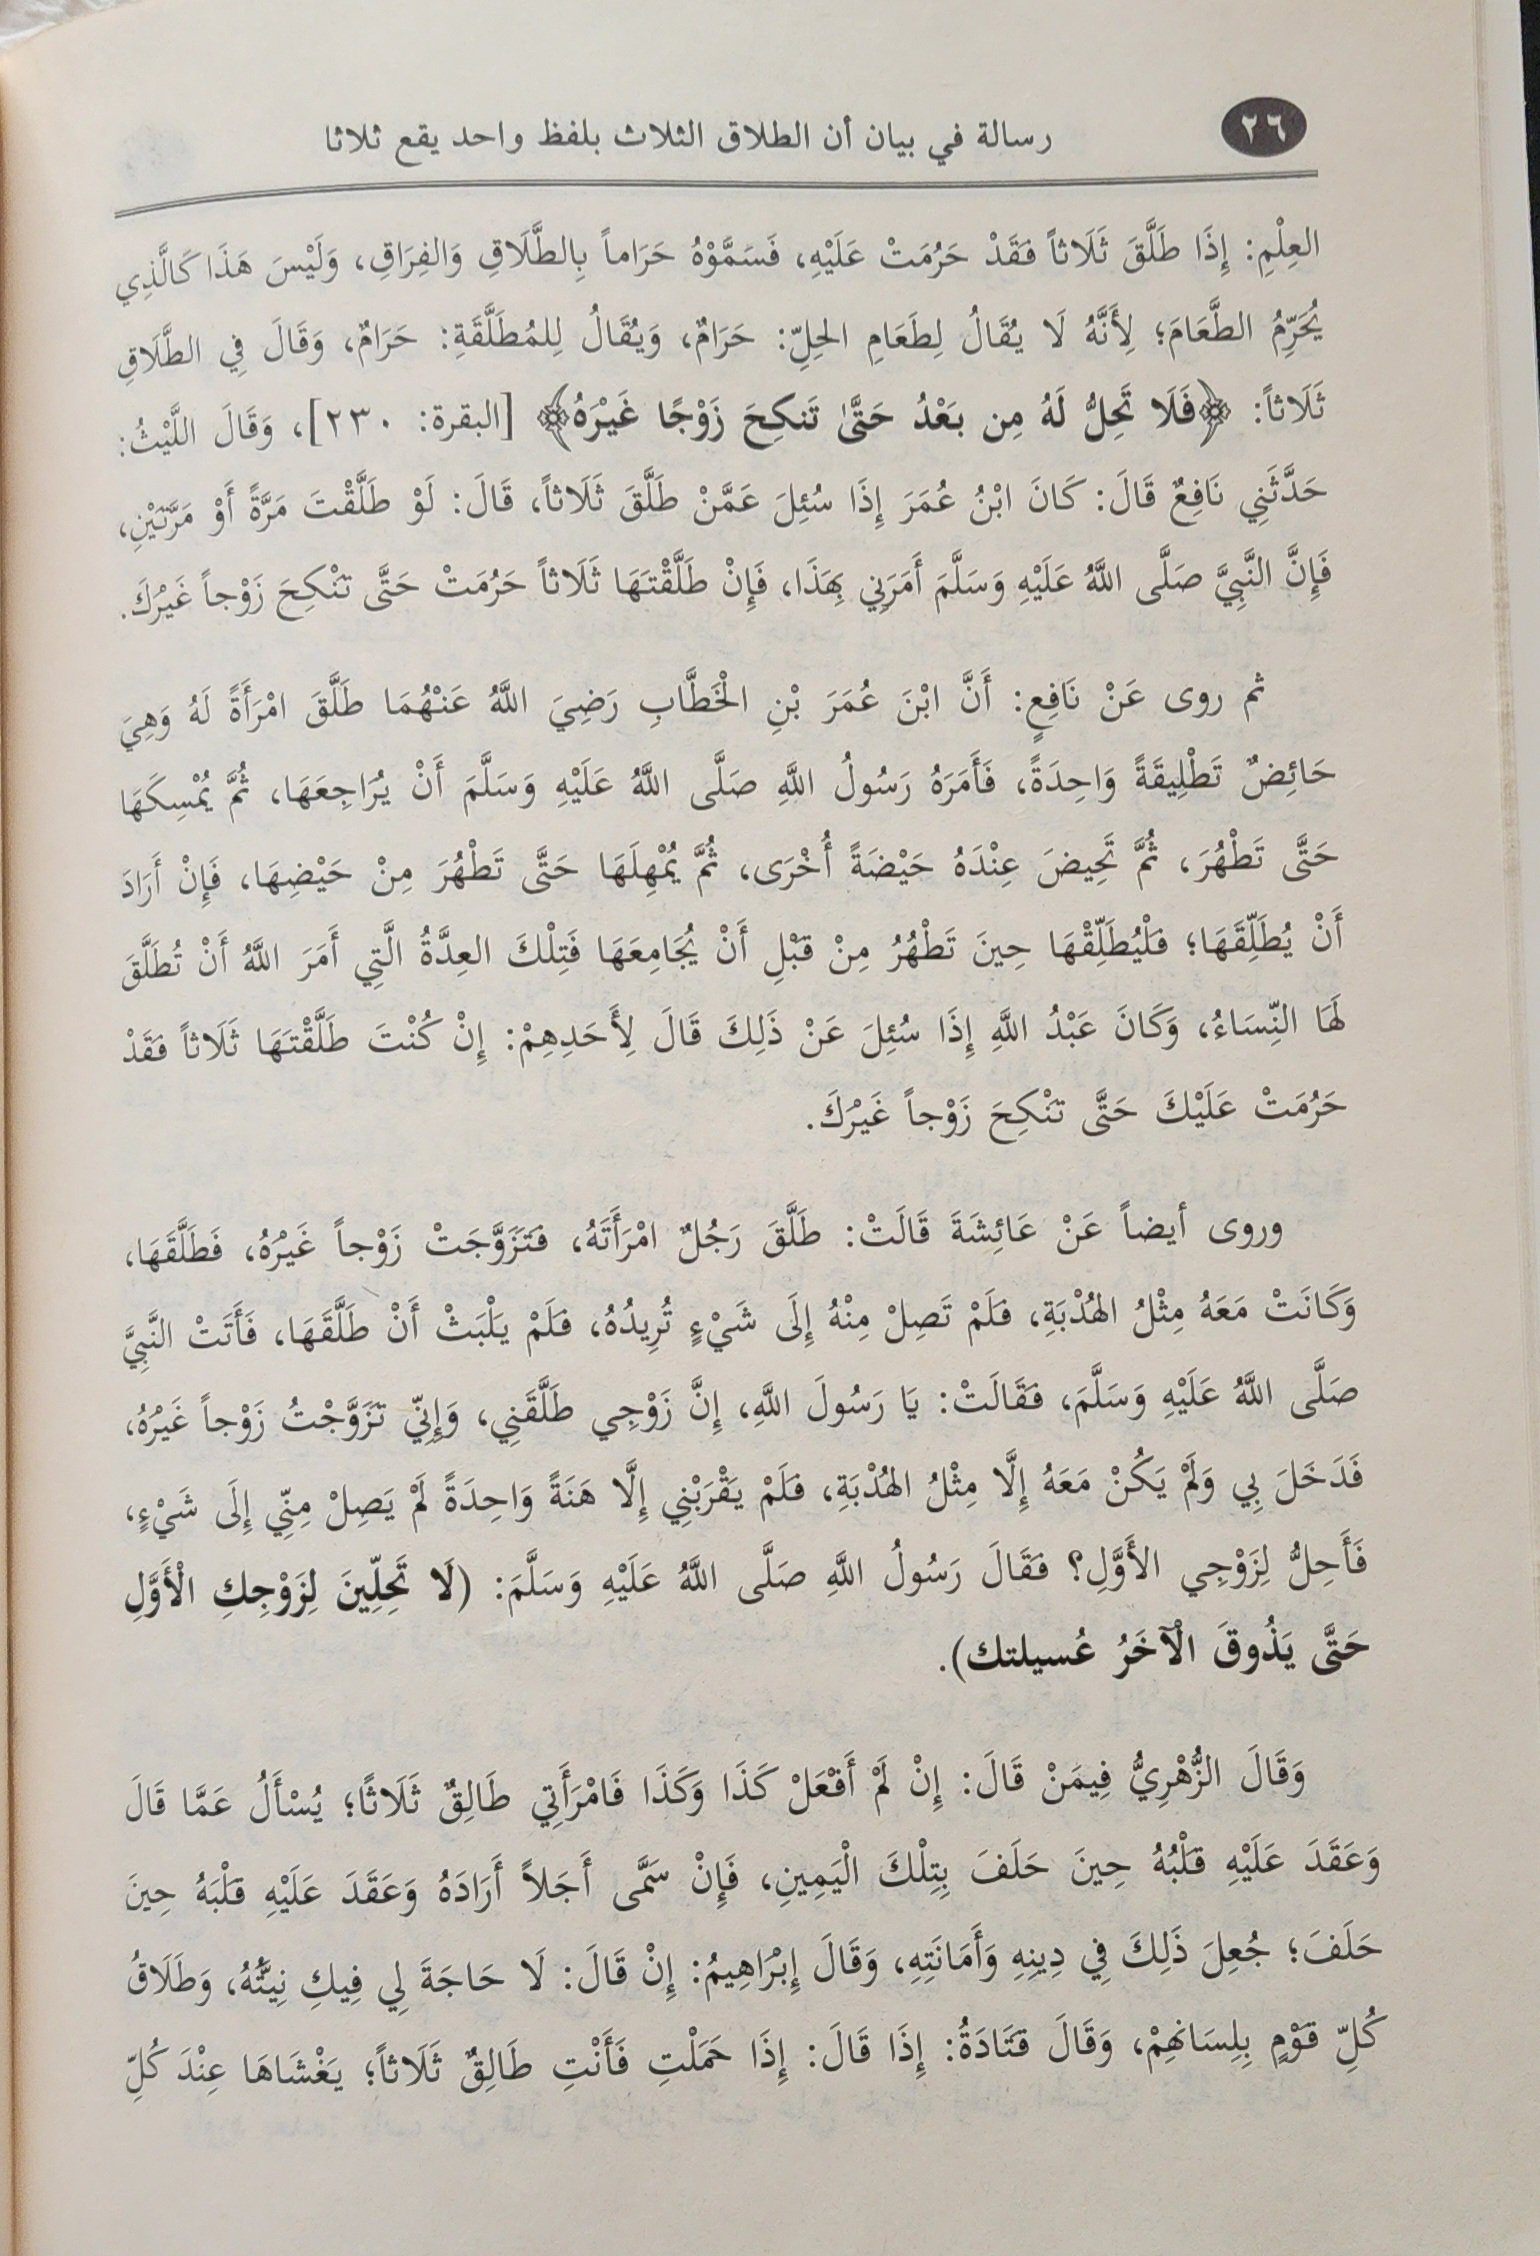 ٢٦
رسالة في بيان أن الطلاق الثلاث بلفظ واحد يقع ثلاثا
العِلْمِ: إِذَا طَلَّقَ ثَلَاثاً فَقَدْ حَرُمَتْ عَلَيْهِ، فَسَمَّوْهُ حَرَاماً بِالطَّلَاقِ وَالفِرَاقِ، وَلَيْسَ هَذَا كَالَّذِي
يُحَرِّمُ الطَّعَامَ؛ لِأَنَّهُ لَا يُقَالُ لِطَعَامِ الحِلِّ: حَرَامٌ، وَيُقَالُ لِلمُطَلَّقَةِ: حَرَامٌ، وَقَالَ فِي الطَّلَاقِ
ثَلَاثاً: ﴿فَلَا تَحِلُّ لَهُ مِن بَعْدُ حَتَّىٰ تَنكِحَ زَوْجًا غَيْرَهُ﴾ [البقرة: ٢٣٠]، وَقَالَ اللَّيْثُ:
حَدَّثَنِي نَافِعٌ قَالَ: كَانَ ابْنُ عُمَرَ إِذَا سُئِلَ عَمَّنْ طَلَّقَ ثَلَاثاً، قَالَ: لَوْ طَلَّقْتَ مَرَّةً أَوْ مَرَّتَيْنِ،
فَإِنَّ النَّبِيَّ صَلَّى اللَّهُ عَلَيْهِ وَسَلَّمَ أَمَرَنِي بِهَذَا، فَإِنْ طَلَّقْتَهَا ثَلَاثاً حَرُمَتْ حَتَّى تَنْكِحَ زَوْجاً غَيْرُكَ.
ثم روى عَنْ نَافِعٍ: أَنَّ ابْنَ عُمَرَ بْنِ الْخَطَّابِ رَضِيَ اللَّهُ عَنْهُمَا طَلَّقَ امْرَأَةً لَهُ وَهِيَ
حَائِضٌ تَطْلِيقَةً وَاحِدَةً، فَأَمَرَهُ رَسُولُ اللَّهِ صَلَّى اللَّهُ عَلَيْهِ وَسَلَّمَ أَنْ يُرَاجِعَهَا، ثُمَّ يُمْسِكَهَا
حَتَّى تَطْهُرَ، ثُمَّ تَحِيضَ عِنْدَهُ حَيْضَةً أُخْرَى، ثُمَّ يُمْهِلَهَا حَتَّى تَطْهُرَ مِنْ حَيْضِهَا، فَإِنْ أَرَادَ
أَنْ يُطَلِّقَهَا؛ فَلْيُطَلِّقْهَا حِينَ تَطْهُرُ مِنْ قَبْلِ أَنْ يُجَامِعَهَا فَتِلْكَ العِدَّةُ الَّتِي أَمَرَ اللَّهُ أَنْ تُطَلَّقَ
لَهَا النِّسَاءُ، وَكَانَ عَبْدُ اللَّهِ إِذَا سُئِلَ عَنْ ذَلِكَ قَالَ لِأَحَدِهِمْ: إِنْ كُنْتَ طَلَّقْتَهَا ثَلَاثاً فَقَدْ
حَرُمَتْ عَلَيْكَ حَتَّى تَنْكِحَ زَوْجاً غَيْرُكَ.
وروى أيضاً عَنْ عَائِشَةَ قَالَتْ: طَلَّقَ رَجُلٌ امْرَأَتَهُ، فَتَزَوَّجَتْ زَوْجاً غَيْرُهُ، فَطَلَّقَهَا،
وَكَانَتْ مَعَهُ مِثْلُ الهُدْبَةِ، فَلَمْ تَصِلْ مِنْهُ إِلَى شَيْءٍ تُرِيدُهُ، فَلَمْ يَلْبَثْ أَنْ طَلَّقَهَا، فَأَتَتْ النَّبِيَّ
صَلَّى اللَّهُ عَلَيْهِ وَسَلَّمَ، فَقَالَتْ: يَا رَسُولَ اللَّهِ، إِنَّ زَوْجِي طَلَّقَنِي، وَإِنِّي تَزَوَّجْتُ زَوْجاً غَيْرُهُ،
فَدَخَلَ بِي وَلَمْ يَكُنْ مَعَهُ إِلَّا مِثْلُ الهُدْبَةِ، فَلَمْ يَقْرَبْنِي إِلَّا هَنَةً وَاحِدَةً لَمْ يَصِلْ مِنِّي إِلَى شَيْءٍ،
فَأَحِلُّ لِزَوْجِي الأَوَّلِ؟ فَقَالَ رَسُولُ اللَّهِ صَلَّى اللَّهُ عَلَيْهِ وَسَلَّمَ: (لَا تَحِلِّينَ لِزَوْجِكِ الْأَوَّلِ
حَتَّى يَذُوقَ الْآخَرُ عُسيلتك).
وَقَالَ الزُّهْرِيُّ فِيمَنْ قَالَ: إِنْ لَمْ أَفْعَلْ كَذَا وَكَذَا فَامْرَأَتِي طَالِقٌ ثَلَاثًا؛ يُسْأَلُ عَمَّا قَالَ
وَعَقَدَ عَلَيْهِ قَلْبُهُ حِينَ حَلَفَ بِتِلْكَ الْيَمِينِ، فَإِنْ سَمَّى أَجَلاً أَرَادَهُ وَعَقَدَ عَلَيْهِ قَلْبَهُ حِينَ
حَلَفَ؛ جُعِلَ ذَلِكَ فِي دِينِهِ وَأَمَانَتِهِ، وَقَالَ إِبْرَاهِيمُ: إِنْ قَالَ: لَا حَاجَةَ لِي فِيكِ نِيَّتُهُ، وَطَلَاقُ
كُلِّ قَوْمٍ بِلِسَانِهِمْ، وَقَالَ قَتَادَةُ: إِذَا قَالَ: إِذَا حَمَلْتِ فَأَنْتِ طَالِقٌ ثَلَاثاً؛ يَغْشَاهَا عِنْدَ كُلِّ